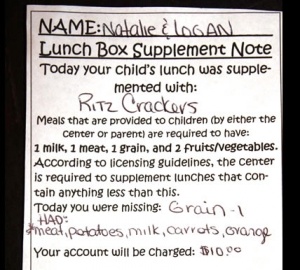 NAME: Natalie & LOGAN
Lunch Box Supplement Note
Today your child's lunch was supple-
mented with:
Ritz Crackers
Meals that are provided to children (by either the
center or parent) are required to have:
1 milk, 1 meat, 1 grain, and 2 fruits/vegetables.
According to licensing guidelines, the center
is required to supplement lunches that con-
tain anything less than this.
Today you were missing: Grain - 1
HAD:
*meat, potatoes, milk, carrots, orange
Your account will be charged: $10.00